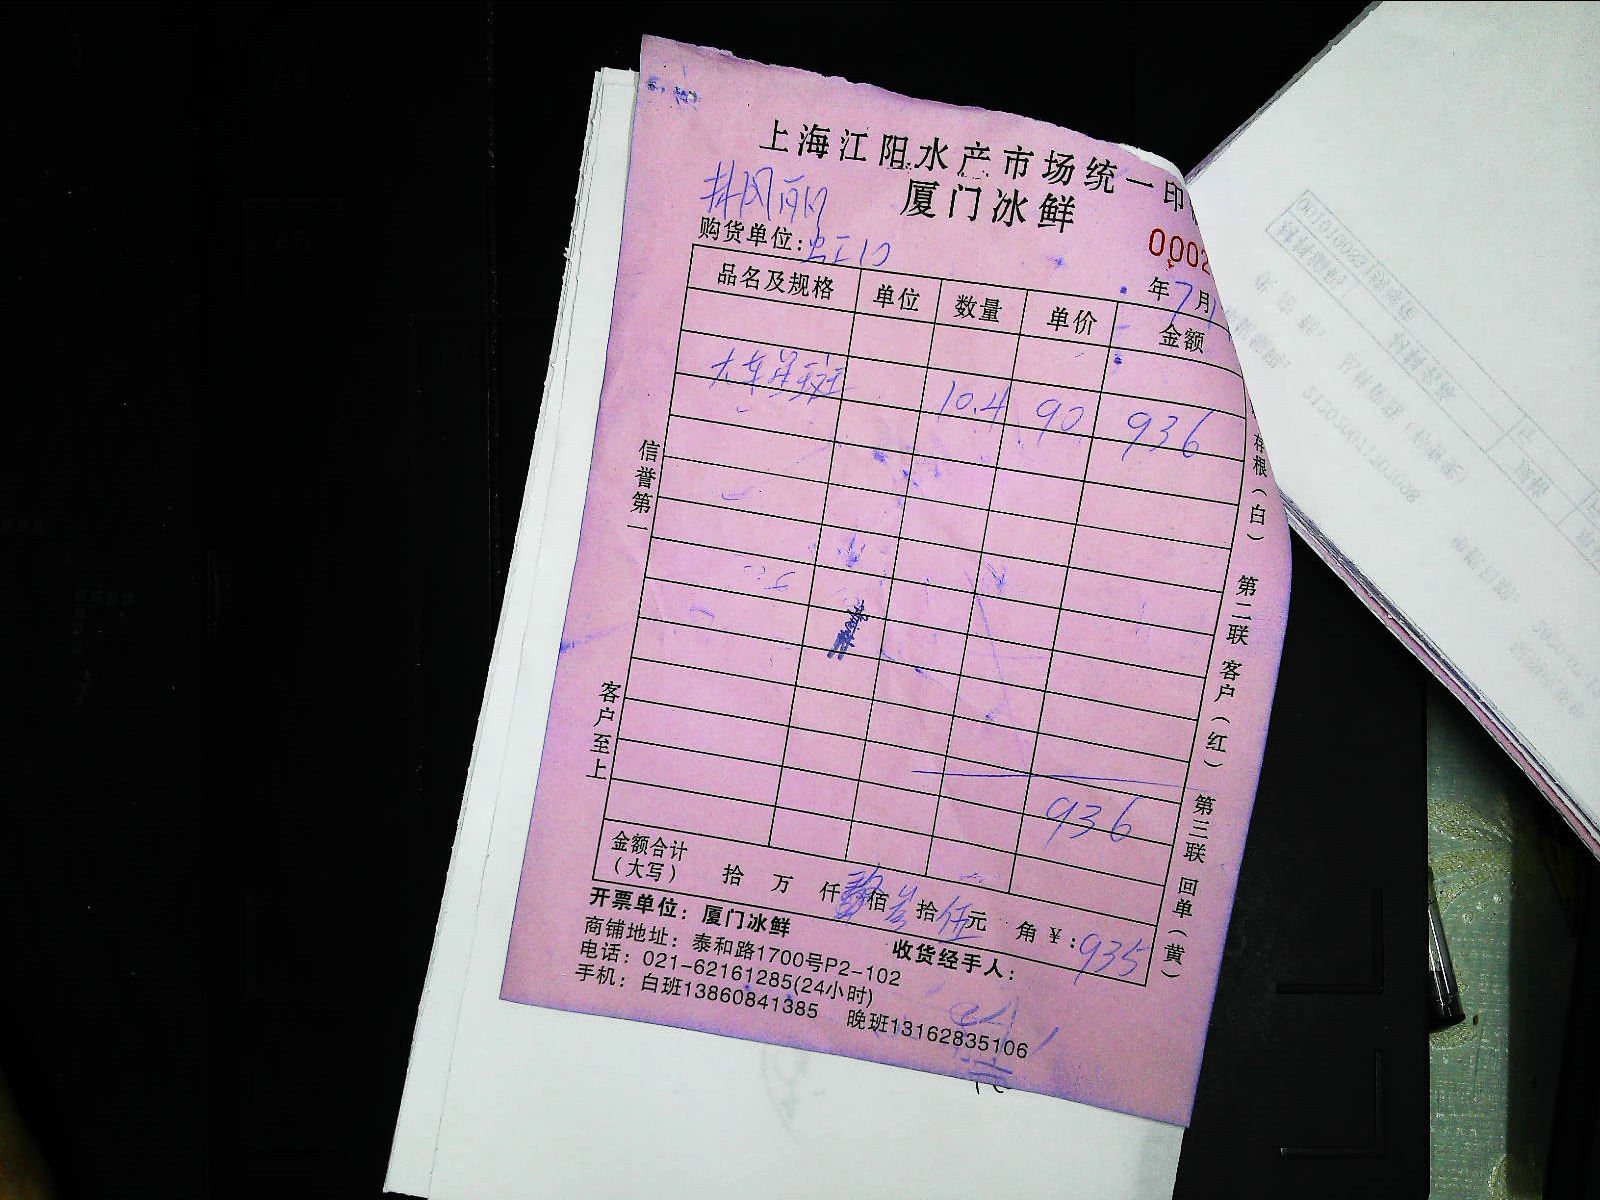 上海江阳水产市场统一印
厦门冰鲜
购货单位: 虹口
0002
年 7 月
品名及规格 单位 数量 单价 金额
大东星斑 10.4 90 936
936
信誉第一
客户至上
存根(白) 第二联 客户(红) 第三联 回单(黄)
金额合计
(大写) 拾 万 仟 玖 佰 叁 拾 伍 元 角 ¥: 935
开票单位: 厦门冰鲜 收货经手人:
商铺地址: 泰和路1700号P2-102
电话: 021-62161285(24小时)
手机: 白班13860841385 晚班13162835106